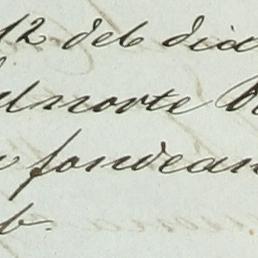 12 del dia
al norte
fondean
b.